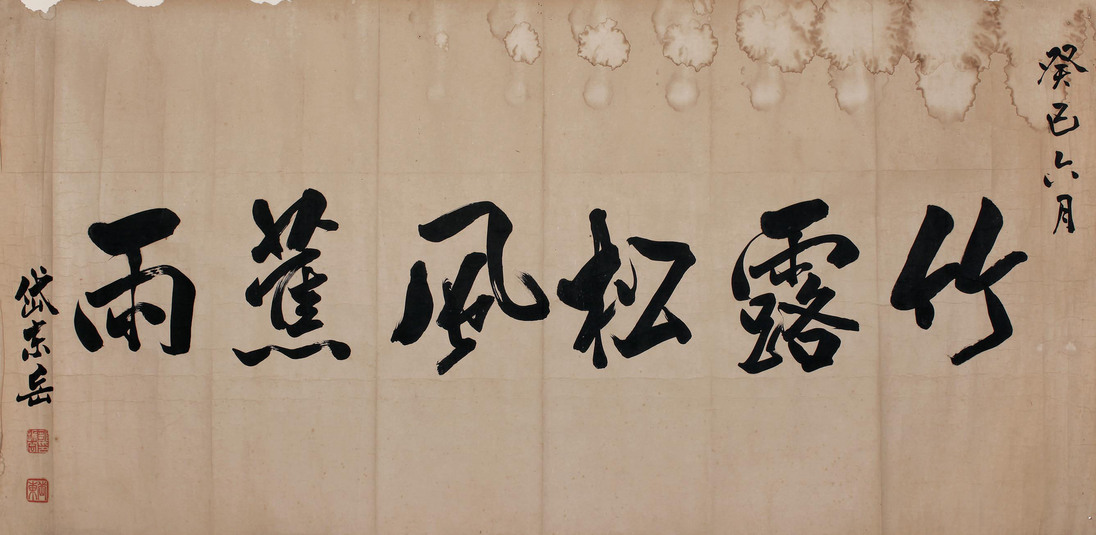 癸巳六月
竹露松風蕉雨
岱宗岳